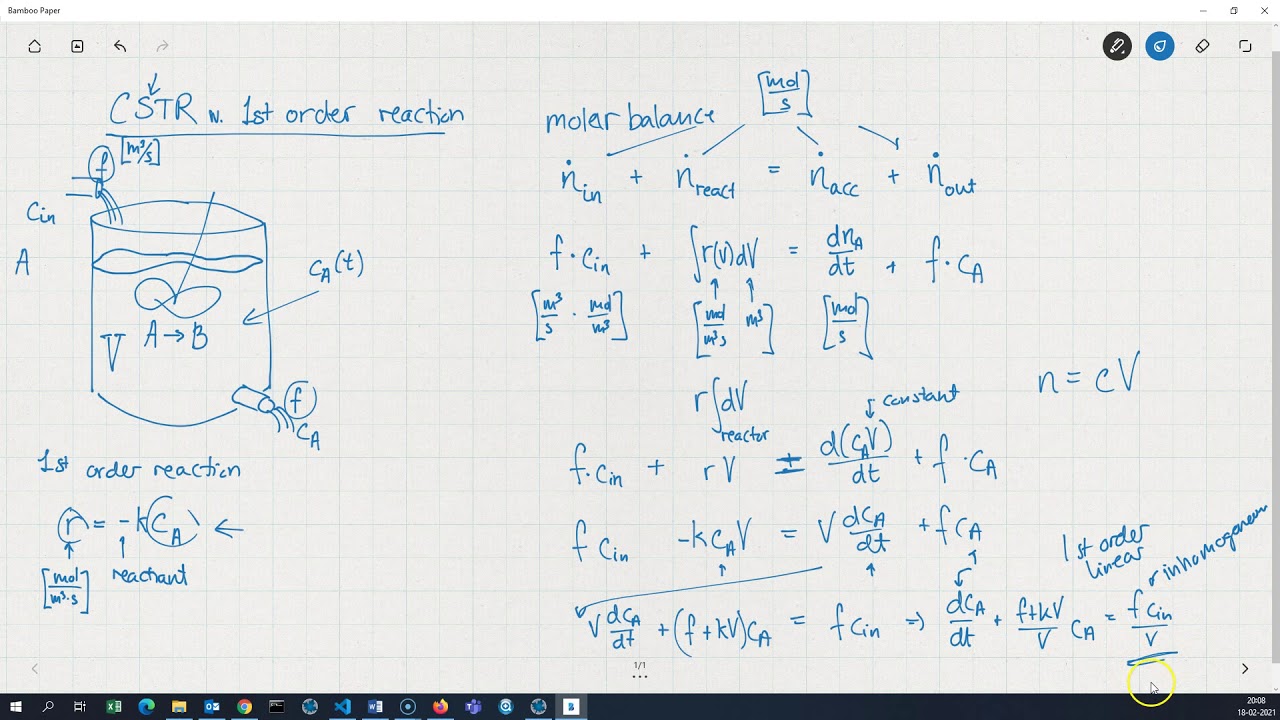 Bamboo Paper
CSTR w. 1st order reaction
[m³/s]
f
Cin
A
CA(t)
A → B
V
f
CA
1st order reaction
r = -k CA ←
[mol/m³·s] reactant
molar balance [mol/s]
ṅin + ṅreact = ṅacc + ṅout
f · Cin + ∫r(V)dV = dnA/dt + f · CA
[m³/s · mol/m³] [mol/m³s m³] [mol/s]
n = cV
r∫dV
reactor
constant
f · Cin + rV = d(CAV)/dt + f · CA
f Cin - k CA V = V dCA/dt + f CA
1st order
linear
inhomogeneous
V dCA/dt + (f + kV)CA = f Cin ⇒ dCA/dt + f+kV/V CA = f Cin/V
1/1
20:08
18-02-2021